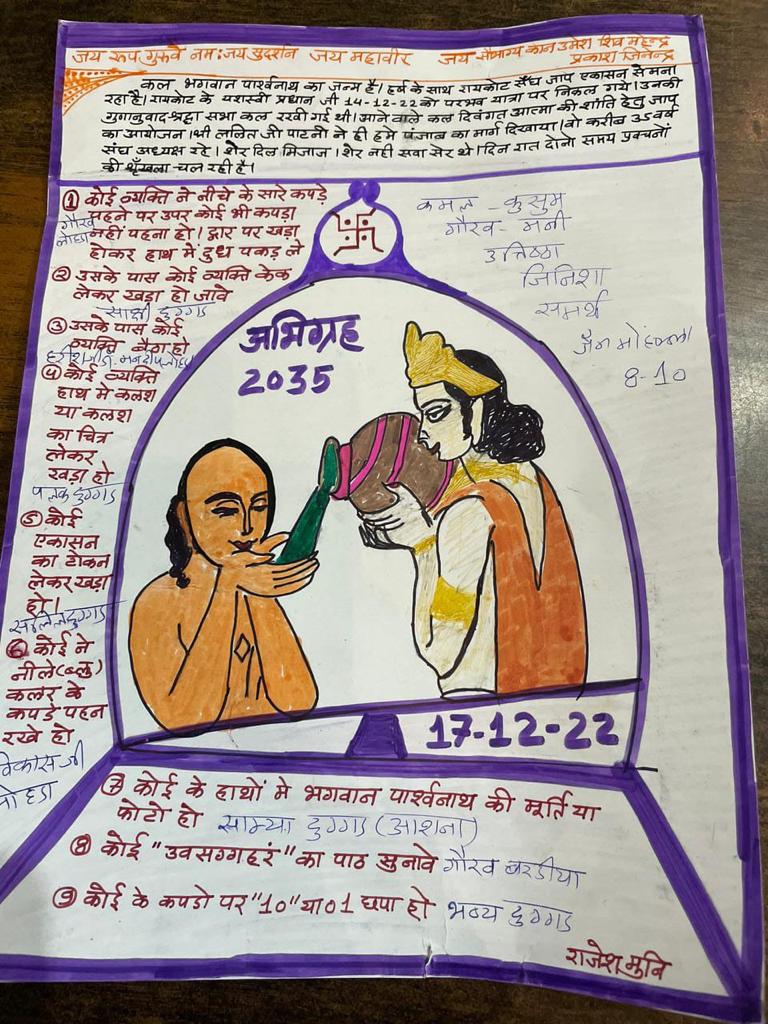 जय रूप गुरुवे नम: जय सुदर्शन जय महावीर जय सौभाग्य कान उमेश शिव महेन्द्र
प्रकाश जिनेन्द्र
कल भगवान पार्श्वनाथ का जन्म है। हर्ष के साथ रायकोट संघ जाप एकासन से मना
रहा है। रायकोट के यशस्वी प्रधान जी 14-12-22 को परभव यात्रा पर निकल गये। उनकी
गुणानुवाद-श्रद्धा सभा कल रखी गई थी। आने वाले कल दिवंगत आत्मा की शांति हेतु जाप
का आयोजन। श्री ललित जी पाटनी ने ही हमे पंजाब का मार्ग दिखाया। वो करीब 35 वर्ष
संघ अध्यक्ष रहे। शेर दिल मिजाज। शेर नही सवा सेर थे। दिन रात दोनो समय प्रवचनों
की श्रृंखला चल रही है।
① कोई व्यक्ति ने नीचे के सारे कपडे
पहने पर उपर कोई भी कपडा
नहीं पहना हो। द्वार पर खडा
होकर हाथ में दुध पकड़ ले
गौरव
लोहडा
② उसके पास कोई व्यक्ति केक
लेकर खडा हो जावे
साक्षी दुग्गड
③ उसके पास कोई
व्यक्ति बैठा हो
④ कोई व्यक्ति
हाथ मे कलश
या कलश
का चित्र
लेकर
खडा हो
पलक दुग्गड
⑤ कोई
एकासन
का टोकन
लेकर खडा
हो।
सलिल दुग्गड
⑥ कोई ने
नीले (ब्लु)
कलर के
कपडे पहन
रखे हो
विकास जी
लोहडा
कमल - कुसुम
गौरव - मनी
उत्तिष्ठा
जिनिशा
समर्थ
जैन मोहल्ला
8-10
अभिग्रह
2035
17-12-22
⑦ कोई के हाथों मे भगवान पार्श्वनाथ की मूर्ति या
फोटो हो साम्या दुग्गड (आशना)
⑧ कोई "उवसग्गहरं" का पाठ सुनावे गौरव बरडीया
⑨ कोई के कपडो पर "10" या 01 छपा हो भव्य दुग्गड
राजेश मुनि